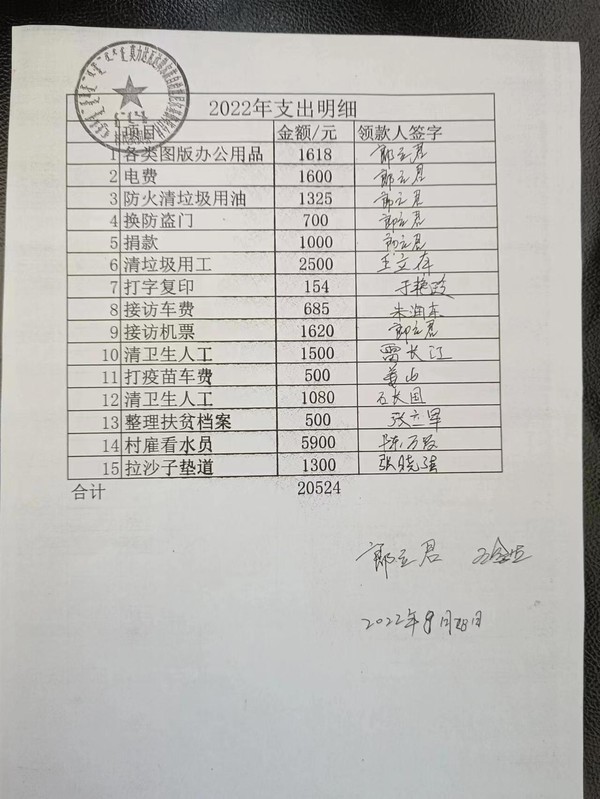 2022年支出明细
项目 金额/元 领款人签字
1 各类图版办公用品 1618 郭立君
2 电费 1600 郭立君
3 防火清垃圾用油 1325 郭立君
4 换防盗门 700 郭立君
5 捐款 1000 郭立君
6 清垃圾用工 2500 王文存
7 打字复印 154
8 接访车费 685 朱润东
9 接访机票 1620 郭立君
10 清卫生人工 1500 雷长江
11 打疫苗车费 500
12 清卫生人工 1080 石长国
13 整理扶贫档案 500 张立军
14 村雇看水员 5900
15 拉沙子垫道 1300 张晓强
合计 20524
郭立君
2022年9月28日